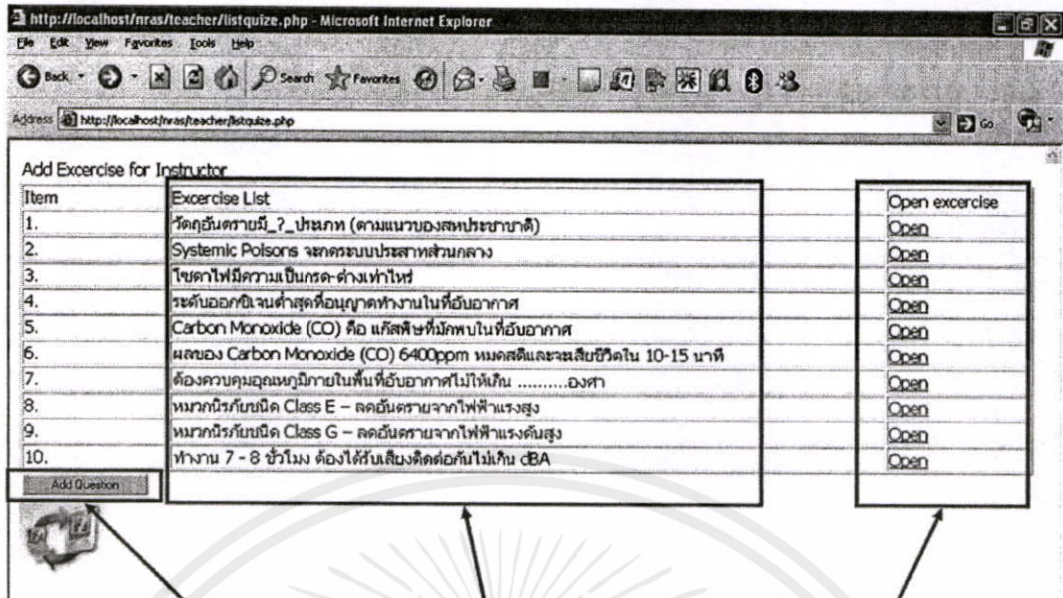 http://localhost/nras/teacher/listquize.php - Microsoft Internet Explorer
File Edit View Favorites Tools Help
Back Search Favorites
Address http://localhost/nras/teacher/listquize.php Go
Add Excercise for Instructor
Item Excercise List Open excercise
1. วัตถุอันตรายมี_?_ประเภท (ตามแนวของสหประชาชาติ) Open
2. Systemic Poisons จะกดระบบประสาทส่วนกลาง Open
3. โซดาไฟมีความเป็นกรด-ด่างเท่าไหร่ Open
4. ระดับออกซิเจนต่ำสุดที่อนุญาตทำงานในที่อับอากาศ Open
5. Carbon Monoxide (CO) คือ แก๊สพิษที่มักพบในที่อับอากาศ Open
6. ผลของ Carbon Monoxide (CO) 6400ppm หมดสติและจะเสียชีวิตใน 10-15 นาที Open
7. ต้องควบคุมอุณหภูมิภายในพื้นที่อับอากาศไม่ให้เกิน ..........องศา Open
8. หมวกนิรภัยชนิด Class E – ลดอันตรายจากไฟฟ้าแรงสูง Open
9. หมวกนิรภัยชนิด Class G – ลดอันตรายจากไฟฟ้าแรงดันสูง Open
10. ทำงาน 7 - 8 ชั่วโมง ต้องได้รับเสียงติดต่อกันไม่เกิน dBA Open
Add Question